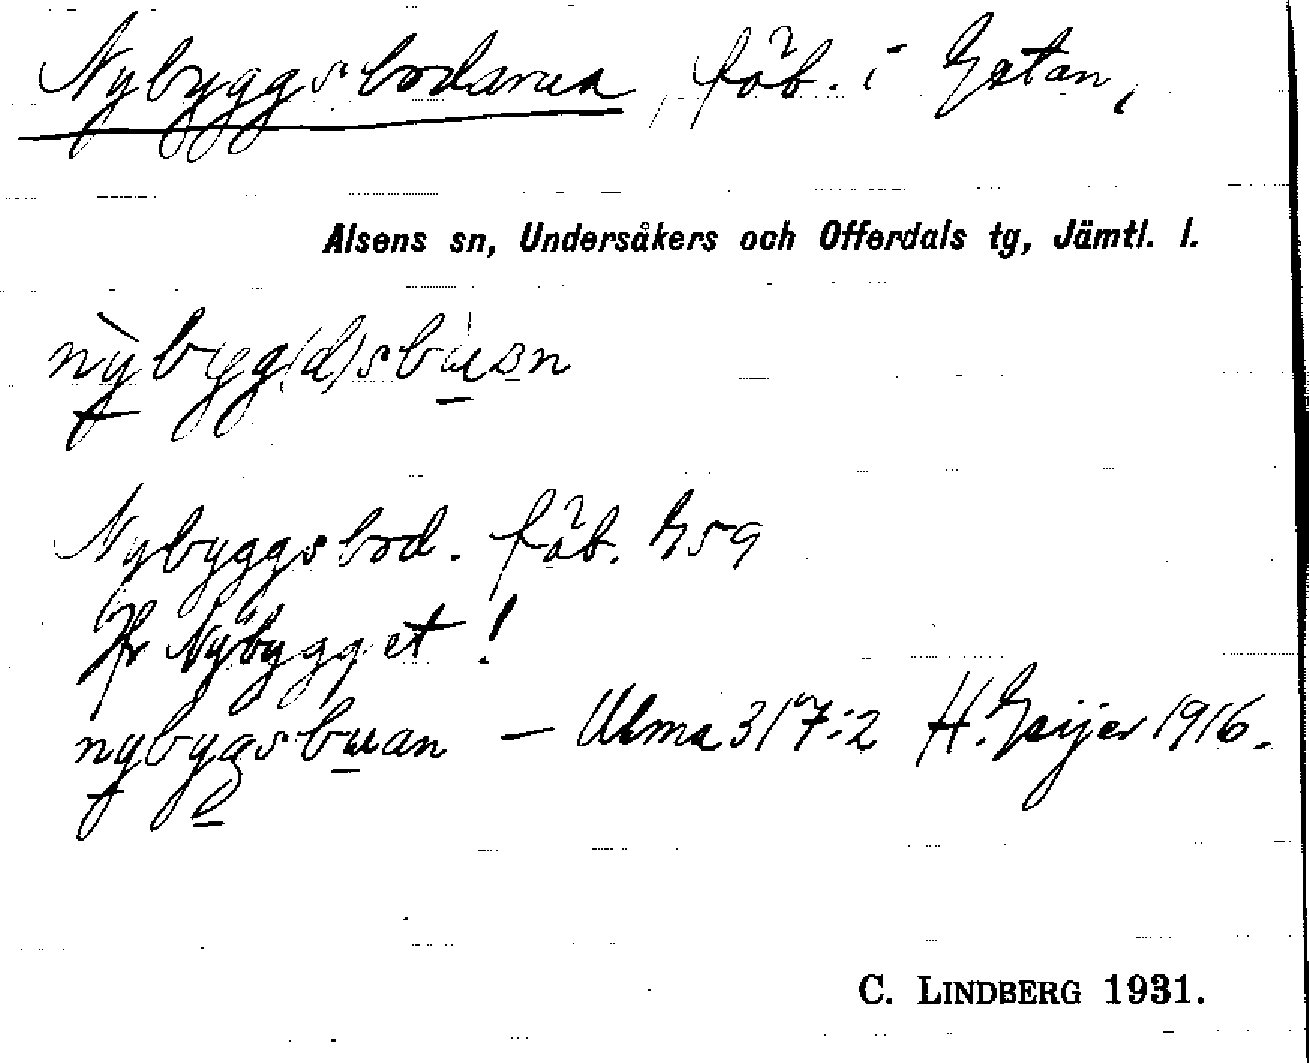 Nybyggsbodarna, fäb. i Getan,
Alsens sn, Undersåkers och Offerdals tg, Jämtl. l.
nỳbyg(d)sbu̱àn
Nybyggsbod. fäb. G59
Jfr Nybygget!
nybygsbu̱an — Ulma 317:2 H. Geijer 1916.
C. LINDBERG 1931.